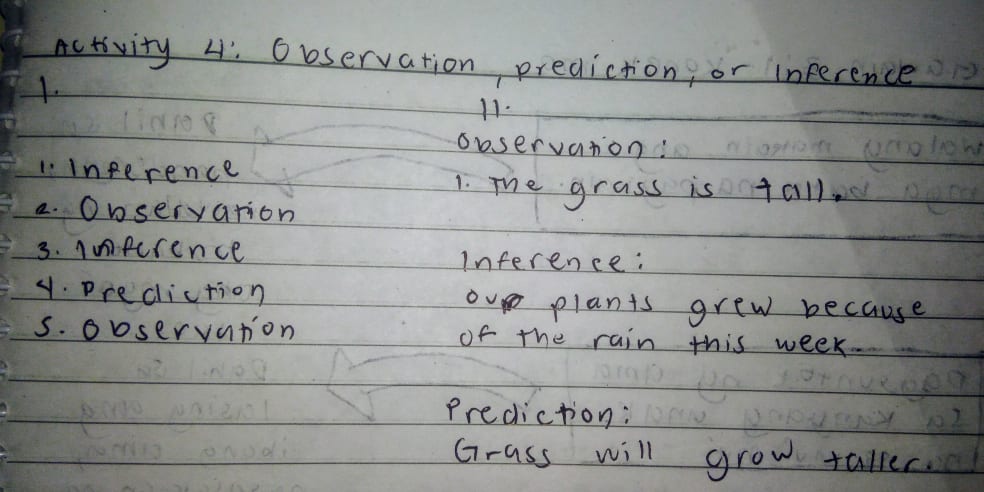 Activity 4: Observation, prediction, or inference
1.
1. Inference
2. Observation
3. Inference
4. Prediction
5. Observation
11.
Observation:
1. The grass is tall.
Inference:
our plants grew because
of the rain this week.
Prediction:
Grass will grow taller.